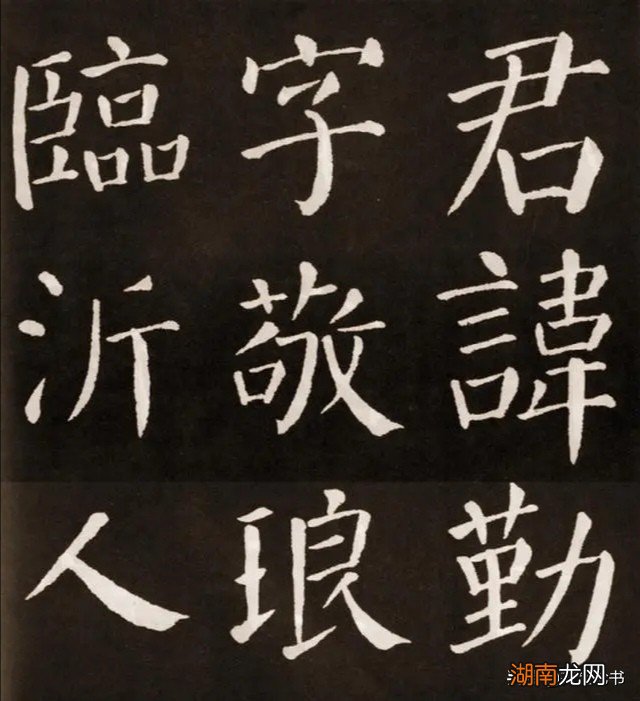 君諱勤
字敬琅
臨沂人
湖南龙网
书